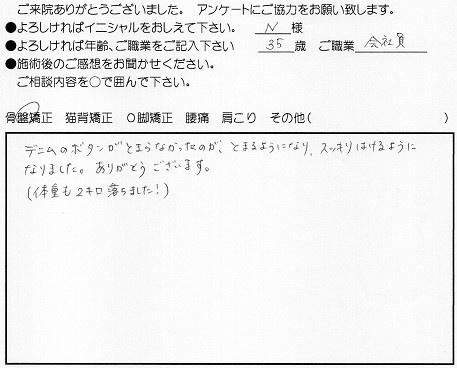 ご来院ありがとうございました。 アンケートにご協力をお願い致します。
●よろしければイニシャルをおしえて下さい。 N 様
●よろしければ年齢、ご職業をご記入下さい 35 歳 ご職業 会社員
●施術後のご感想をお聞かせください。
ご相談内容を○で囲んで下さい。
骨盤矯正 猫背矯正 O脚矯正 腰痛 肩こり その他( )
デニムのボタンがとまらなかったのが、とまるようになり、スッキリはけるように
なりました。ありがとうございます。
(体重も2キロ落ちました!)